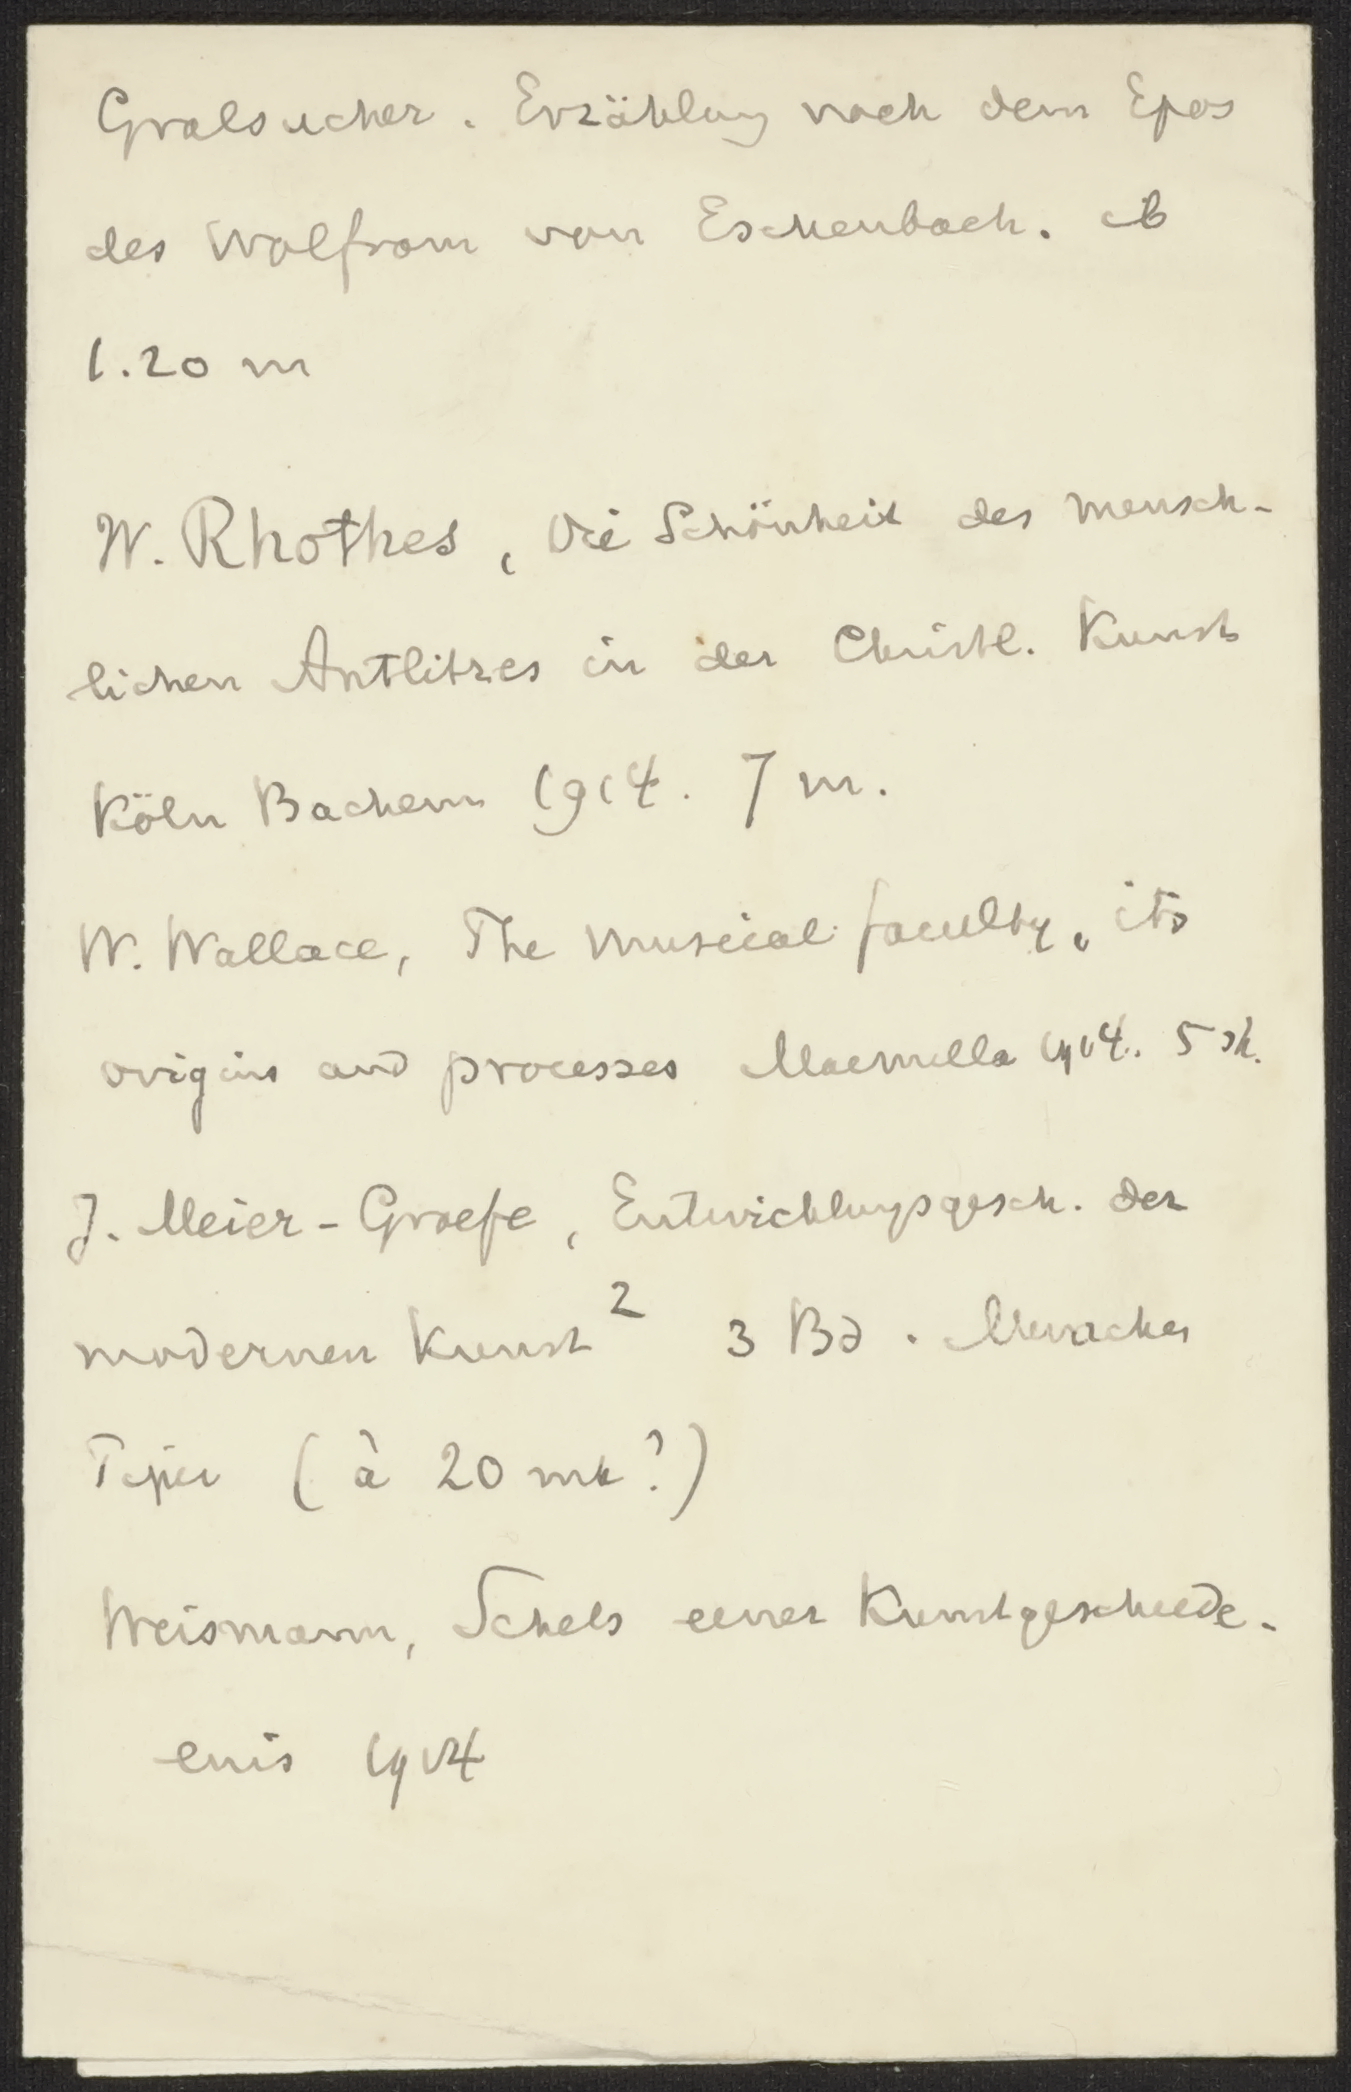 Gralsucher. Erzählung nach dem Epos
des Wolfram von Eschenbach. ib
1.20 m
W. Rhothes, Die Schönheit des mensch-
lichen Antlitzes in der Christl. Kunst
Köln Bachem 1914. 7 m.
W. Wallace, The musical faculty, its
origins and processes Macmilla 1914. 5 sh.
J. Meier-Graefe, Entwicklungsgesch. der
modernen Kunst² 3 Bd. München
(à 20 mk?)
Weismann, Schets eener Kunstgeschiede-
enis 1914